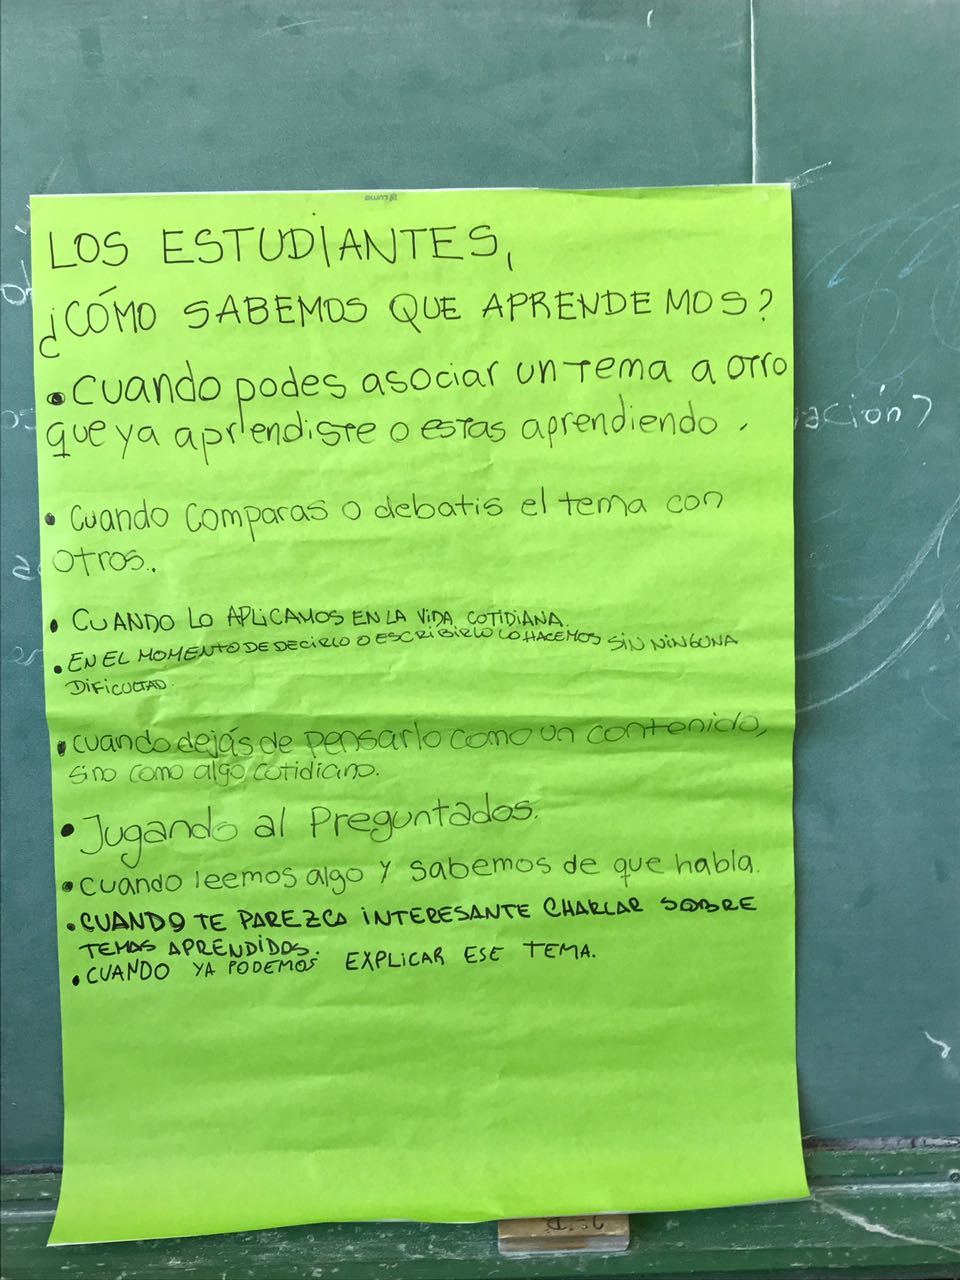 LOS ESTUDIANTES,
¿CÓMO SABEMOS QUE APRENDEMOS?
• Cuando podes asociar un tema a otro
que ya aprendiste o estas aprendiendo.
ación?
• Cuando comparas o debatis el tema con
otros..
• CUANDO LO APLICAMOS EN LA VIDA COTIDIANA.
• EN EL MOMENTO DE DECIRLO O ESCRIBIRLO LO HACEMOS SIN NINGUNA
DIFICULTAD.
• cuando dejás de pensarlo como un contenido,
sino como algo cotidiano.
• Jugando al Preguntados.
• cuando leemos algo y sabemos de que habla.
• CUANDO TE PAREZCA INTERESANTE CHARLAR SOBRE
TEMAS APRENDIDOS.
• CUANDO YA PODEMOS EXPLICAR ESE TEMA.